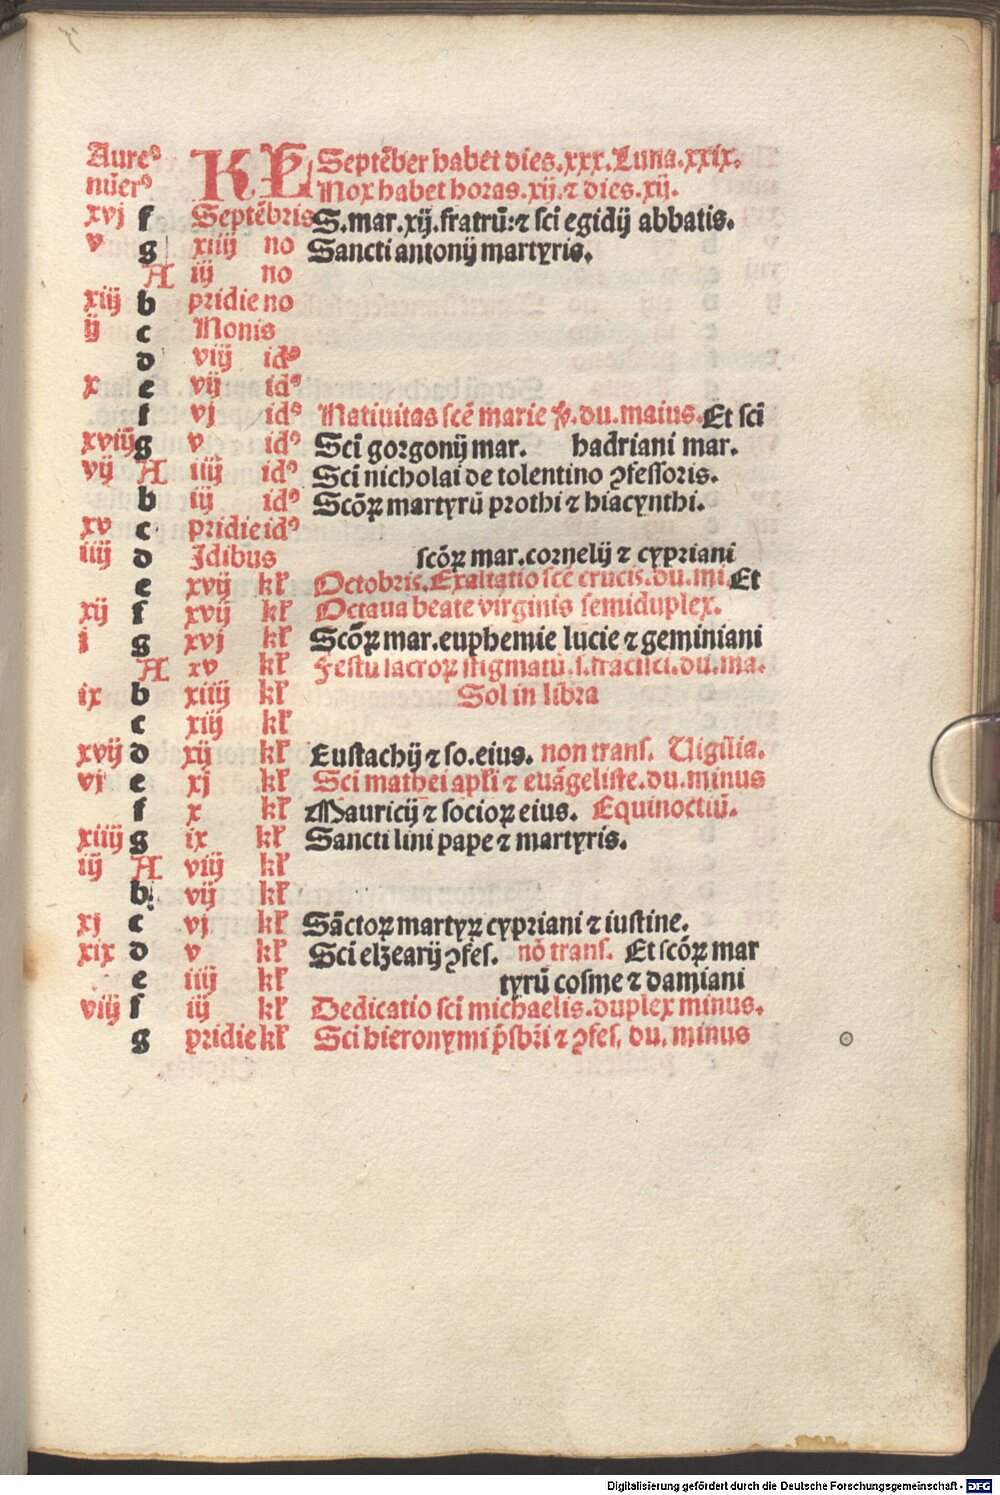 Aureꝰ K L Septẽber habet dies.xxx.Luna.xxix.
nũerꝰ Nox habet horas.xij.⁊ dies.xij.
xvj f Septẽbris S.mar.xij.fratrũ:⁊ scĩ egidij abbatis.
v g xiiij no Sancti antonij martyris.
A iij no
xiij b pridie no
ij c Nonis
d viij idꝰ
x e vij idꝰ
f vj idꝰ Natiuitas scẽ marie ꝟ.du.maius.Et scĩ
xviij g v idꝰ Scĩ gorgonij mar. hadriani mar.
vij A iiij idꝰ Scĩ nicholai de tolentino ꝯfessoris.
b iij idꝰ Scõꝝ martyrũ prothi ⁊ hiacynthi.
xv c pridie idꝰ
iiij d Idibus scõꝝ mar.cornelij ⁊ cypriani
e xvij kł Octobris.Exaltatio scẽ crucis.du.mi.Et
xij f xvij kł Octaua beate virginis semiduplex.
i g xvj kł Scõꝝ mar.euphemie lucie ⁊ geminiani
A xv kł Festũ sacroꝝ stigmatũ.s.frãcisci.du.ma.
ix b xiiij kł Sol in libra
c xiij kł
xvij d xij kł Eustachij ⁊ so.eius. non trans. Uigilia.
vj e xj kł Sci mathei apłi ⁊ euãgeliste.du.minus
f x kł Mauricij ⁊ socioꝝ eius. Equinoctiũ.
xiiij g ix kł Sancti lini pape ⁊ martyris.
iij A viij kł
b vij kł
xj c vj kł Sãctoꝝ martyꝝ cypriani ⁊ iustine.
xix d v kł Sci elzearij ꝯfes. nõ trans. Et scõꝝ mar
e iiij kł tyrũ cosme ⁊ damiani
viij f iij kł Dedicatio sci michaelis.duplex minus.
g pridie kł Sci hieronymi p̃sbr̃i ⁊ ꝯfes. du. minus
Digitalisierung gefördert durch die Deutsche Forschungsgemeinschaft - DFG